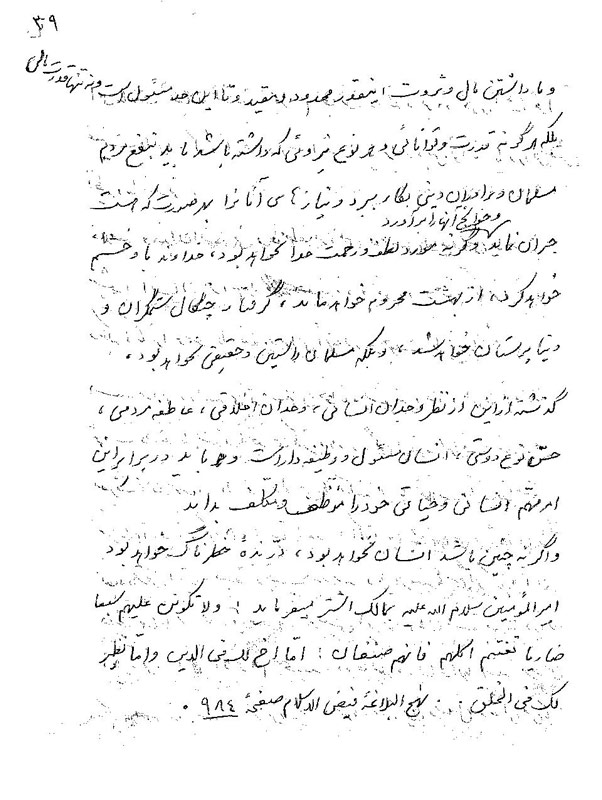 ۳۹
و با داشتن مال و ثروت اینقدر محدود و مقید و تا این حد مسئول است و نه تنها قدرت مالی
بلکه هر گونه قدرت و توانائی و هر نوع نیروئی که داشته باشد باید بنفع مردم
مسلمان و برادران دینی بکار ببرد و نیازهای آنانرا بهر صورت که هست
و حوائج آنها را برآورد
جبران نماید وگرنه مورد لطف و رحمت خدا نخواهد بود، خداوند با وی خشم
خواهد کرد، از بهشت محروم خواهد ماند، گرفتار چنگال ستمگران و
دنیاپرستان خواهد شد، و بلکه مسلمان راستین و حقیقی نخواهد بود،
گذشته از این از نظر وجدان انسانی، وجدان اخلاقی، عاطفه مردمی،
حسّ نوع دوستی، انسان مسئول و وظیفه دار است و باید در برابر این
امر مهّم انسانی و حیاتی خود را موظف و مکلف بداند
و اگر نه چنین باشد انسان نخواهد بود، درّندهٔ خطرناک خواهد بود
امیر المؤمنین سلام الله علیه بمالک اشتر میفرماید: ولا تکونن علیهم سبعا
ضاریا تغتنم اکلهم فانهم صنفان: امّا اخ لک فی الدین وامّا نظیر
لک فی الخلق . . نهج البلاغة فیض الاسلام صفحهٔ ۹۸۴ .